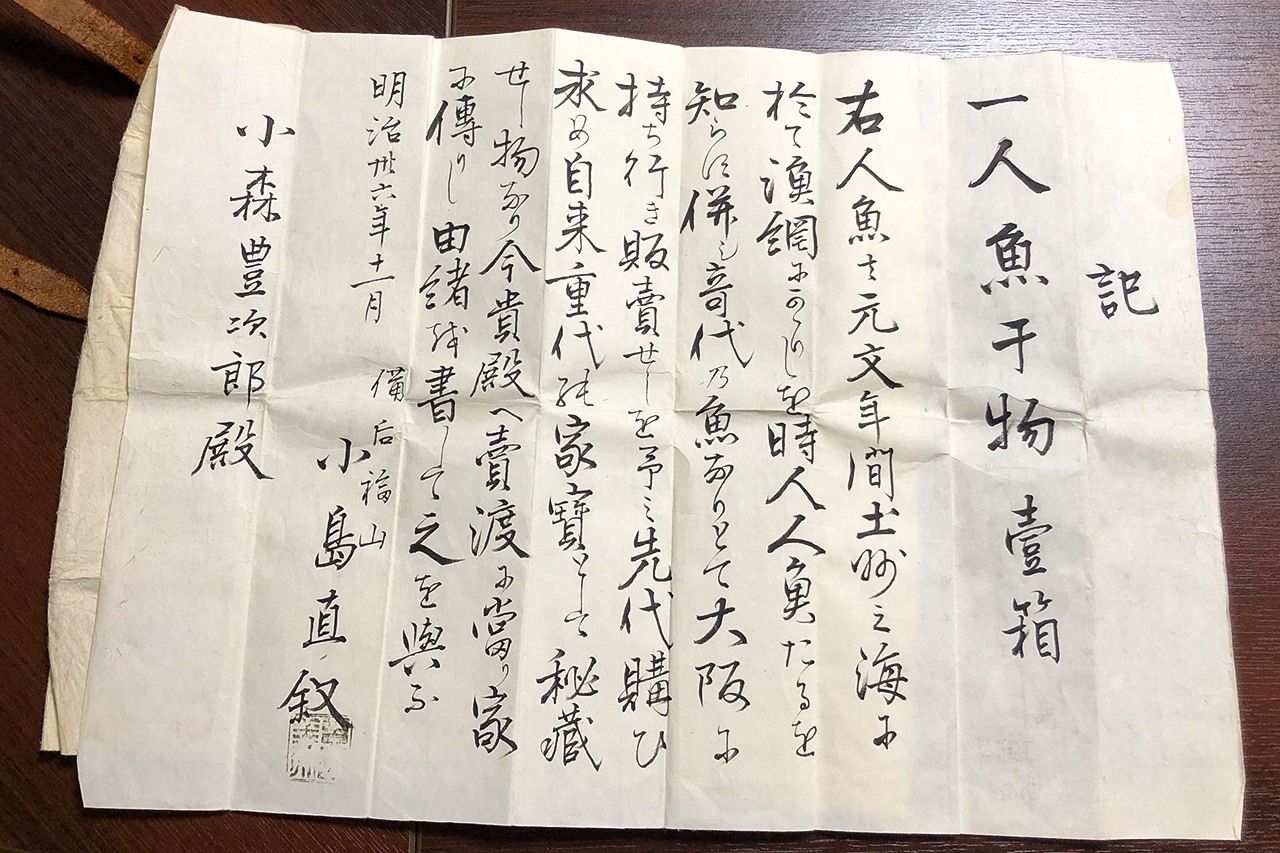 記
一人魚干物 壹箱
右人魚者元文年間土州之海尓
於て漁網尓かゝりしを時人人魚たるを
知らす併し竒代乃魚なりとて大阪尓
持ち行き販賣せしを予之先代購ひ
求め自来重代能家寳として秘藏
せし物なり今貴殿へ賣渡尓當り家
尓傳りし由緒越書して之を與ふ
明治卅六年十一月
備后福山
小島直叙
小森豊次郎殿